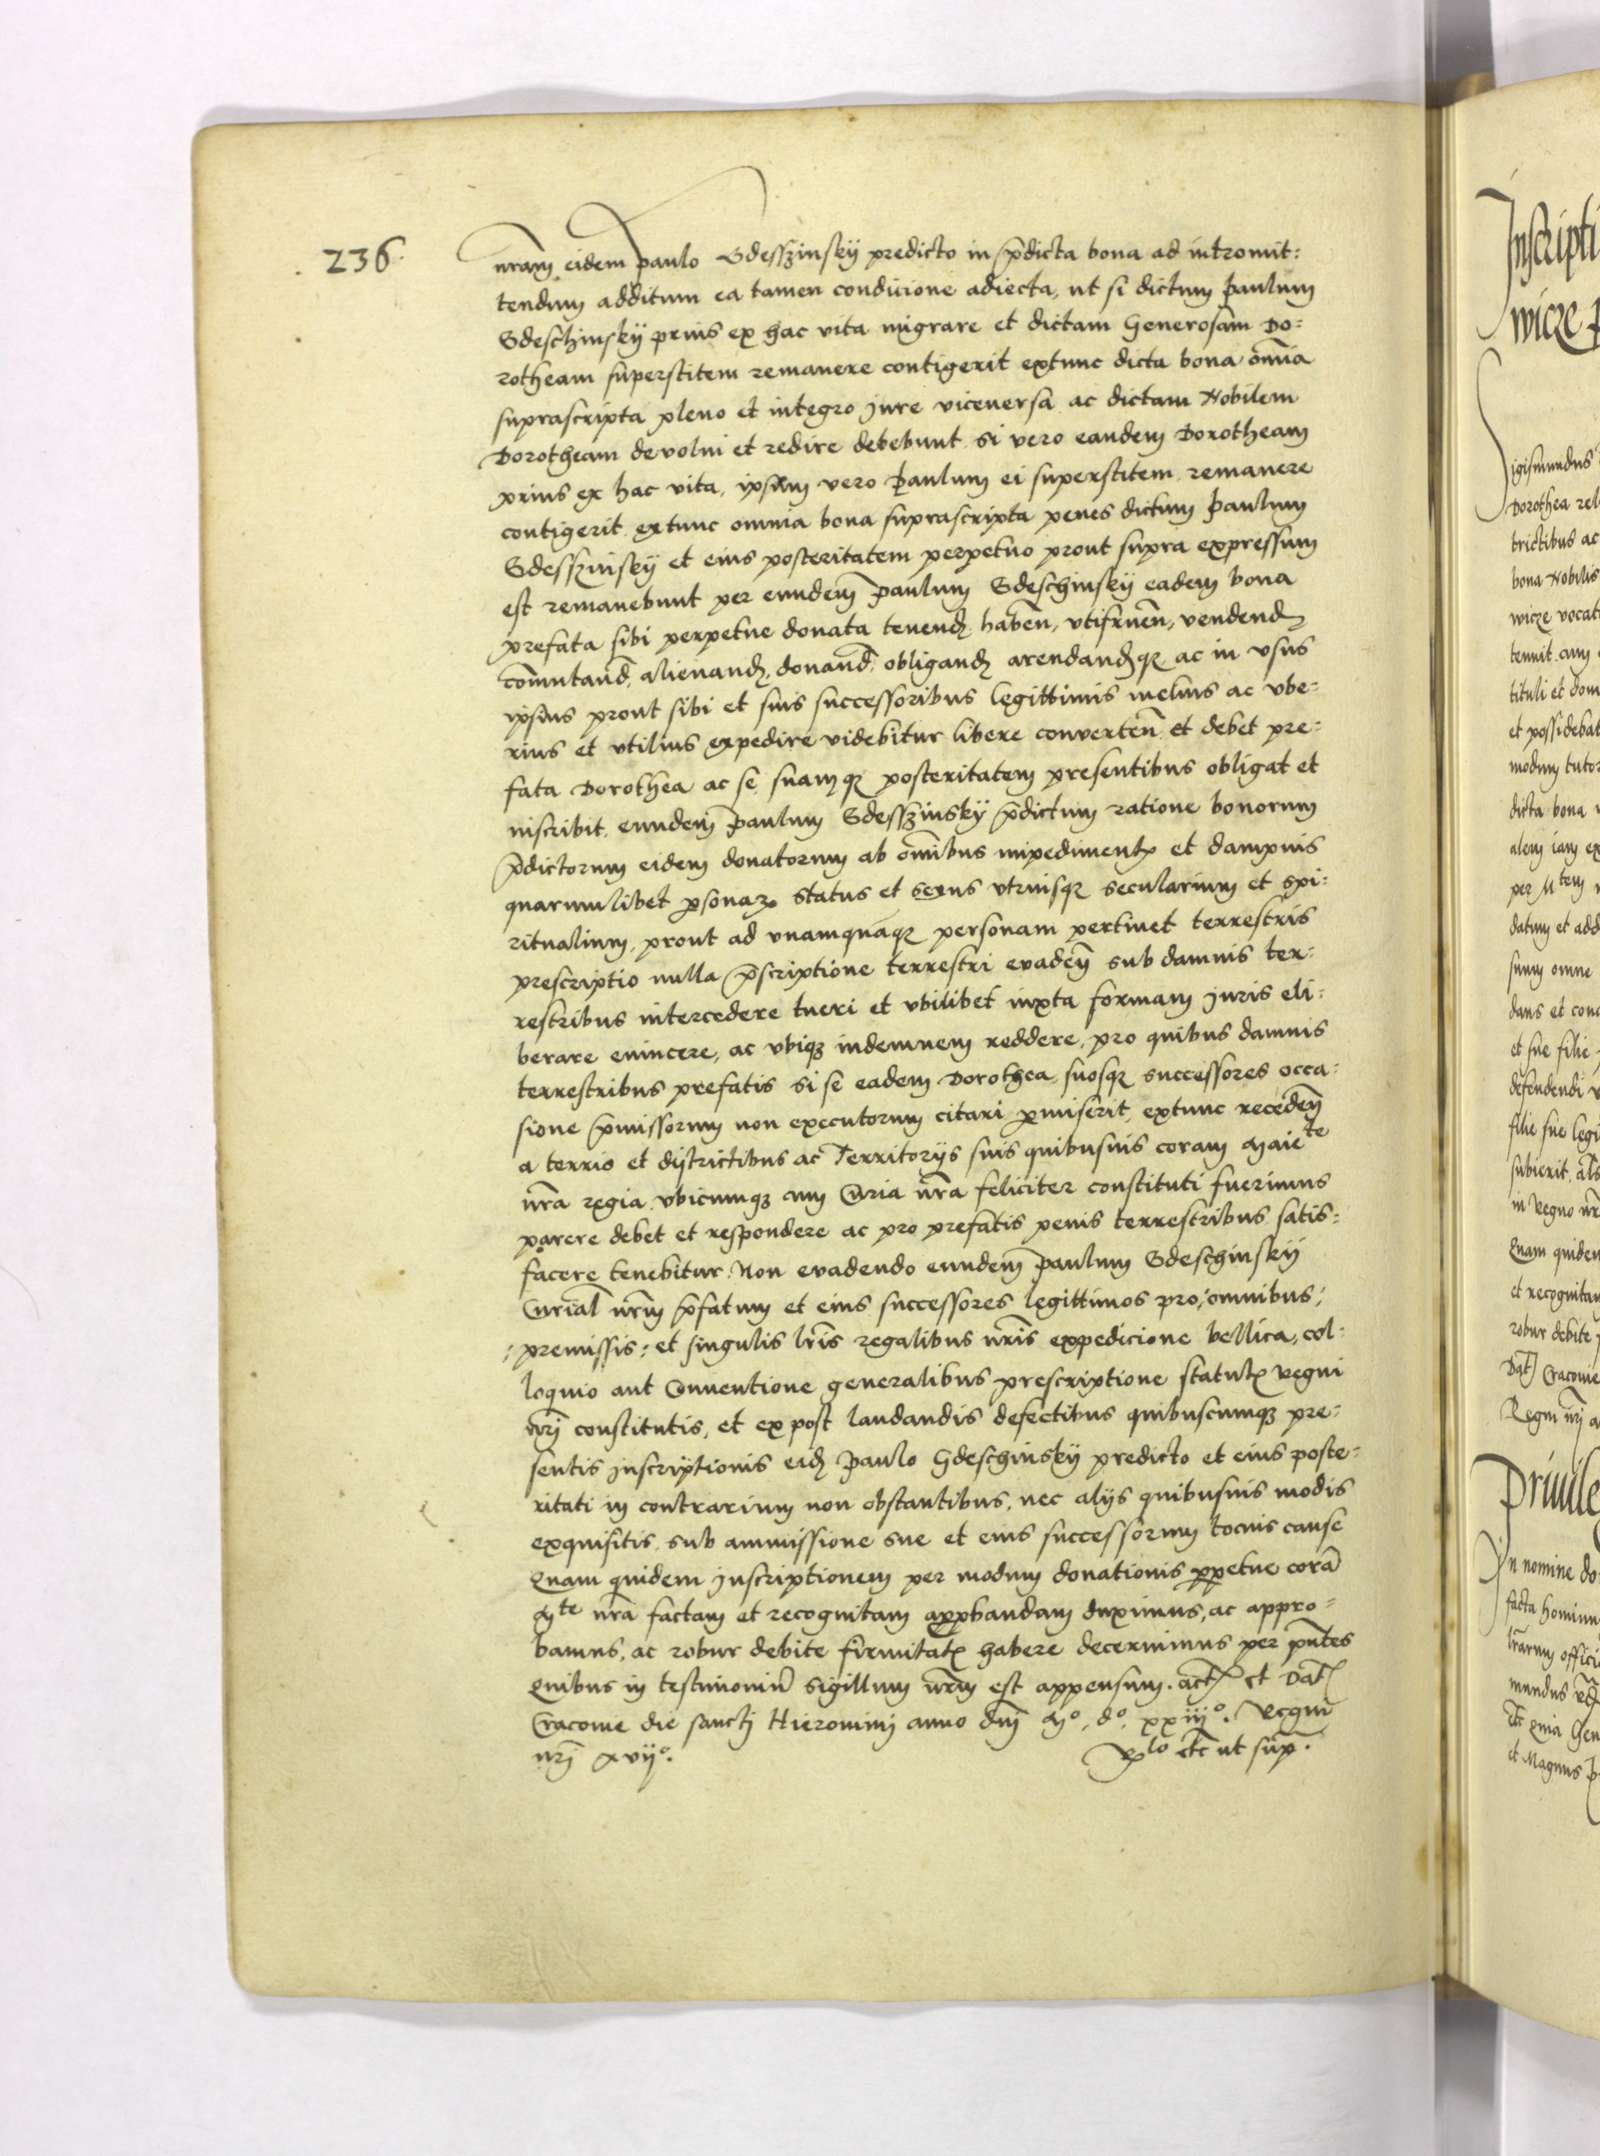 236
nram eidem Paulo Gdesszinskÿ predicto in p̄dicta bona ad intromit:
tendum additum ea tamen condicione adiecta, ut si dictum Paulum
Gdeschinskÿ prius ex hac vita migrare et dictam Generosam Do:
rotheam superstitem remanere contigerit extunc dicta bona om̄ia
suprascripta pleno et integro jure viceversa ac dictam Nobilem
Dorotheam devolui et redire debebunt si vero eandem Dorotheam
prius ex hac vita, ipsum vero Paulum ei superstitem remanere
contigerit extunc omnia bona suprascripta penes dictum Paulum
Gdesszinskÿ et eius posteritatem perpetuo prout supra expressum
est remanebunt per eundem Paulum Gdeschinskÿ eadem bona
prefata sibi perpetue donata tenend haben̄, vtifruen̄, vendend
com̄utand, alienand, donand, obligand arendandqȝ ac in vsus
ipsius prout sibi et suis successoribus legittimis melius ac vbe:
rius et vtilius expedire videbitur libere conuerten̄ et debet pre:
fata Dorothea ac se suamqȝ posteritatem presentibus obligat et
inscribit eundem Paulum Gdesszinskÿ p̄dictum ratione bonorum
p̄dictorum eidem donatorum ab om̄ibus impediment et dampnis
quarumlibet ꝑsonaꝝ status et sexus vtriusqȝ secularium et spi:
ritualium, prout ad vnamquāqȝ personam pertinet terrestris
prescriptio nulla p̄scriptione terrestri evaden̄ sub damnis ter:
restribus intercedere tueri et vbilibet iuxta formam juris eli:
berare euincere, ac vbiqȝ indemnem reddere, pro quibus damnis
terrestribus prefatis si se eadem Dorothea suosqȝ successores occa:
sione p̄missorum non executorum citari ꝑmiserit, extunc receden̄
a terris et districtibus ac Territorÿs suis quibusuis coram Maiete
nr̄a regia vbicumqȝ cum Curia nr̄a feliciter constituti fuerimus
parere debet et respondere ac pro prefatis penis terrestribus satis:
facere tenebitur. Non evadendo eundem Paulum Gdeschinskÿ
Curial nr̄m p̄fatum et eius successores legittimos pro, omnibus;
; premissis; et singulis lr̄is regalibus nr̄is expedicione bellica, col:
loquio aut Conuentione generalibus prescriptione statut regni
nr̄j constitutis, et ex post laudandis defectibus quibuscumqȝ pre:
sentis jnscriptionis eid Paulo Gdeschinskÿ predicto et eius poste:
ritati in contrarium non obstantibus, nec alÿs quibusuis modis
exquisitis, sub ammissione sue et eius successorum tocius cause
Quam quidem jnscriptionem per modum donationis ꝑpetue corā
Mte nr̄a factam et recognitam approbandam duximus, ac appro=
bamus, ac robur debite firmitat habere decernimus per pn̄tes
Quibus in testimoniū Sigillum nr̄m est appensum. Act et Dat
Cracouie die sancti Hieronimi anno dnj Mo. do. xxiijo. Regni
nr̄j xvijo. Rlo etc ut sup̄.
Jnscripti
wicze
igismundus
Dorothea rel
trictibus ac
bona Nobilis
wicze vocat
tenuit cum
tituli et dom
et possidebat
modum tutor
dicta bona
alem iam ex
per Mtem
datum et add
suum omne
dans et conc
et sue filie
defendendi
filie sue legi
subierit als
in Regno nr̄
Quam quidem
et recognitam
robur debite
Dat Cracouie
Regni nr̄j a
Priuile
Jn nomine do
facta hominu
lr̄arum offici
mundus
etc Quia Gen
et Magnus P